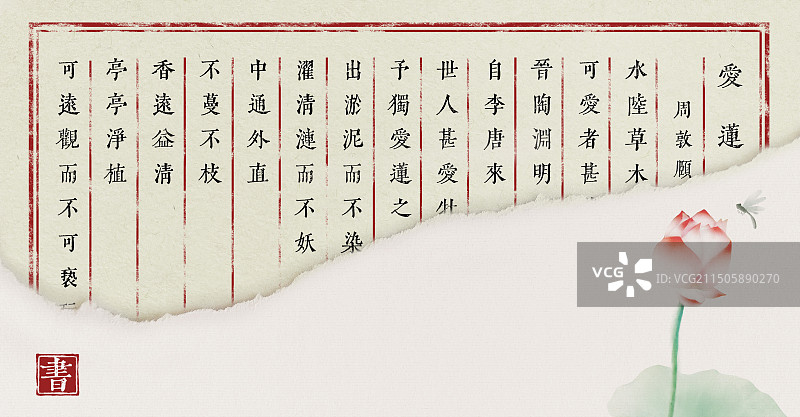 愛蓮
周敦頤
水陸草木
可愛者甚
晉陶淵明
自李唐來
世人甚愛牡
予獨愛蓮之
出淤泥而不染
濯清漣而不妖
中通外直
不蔓不枝
香遠益清
亭亭淨植
可遠觀而不可褻
書
VCG
VCG211505890270